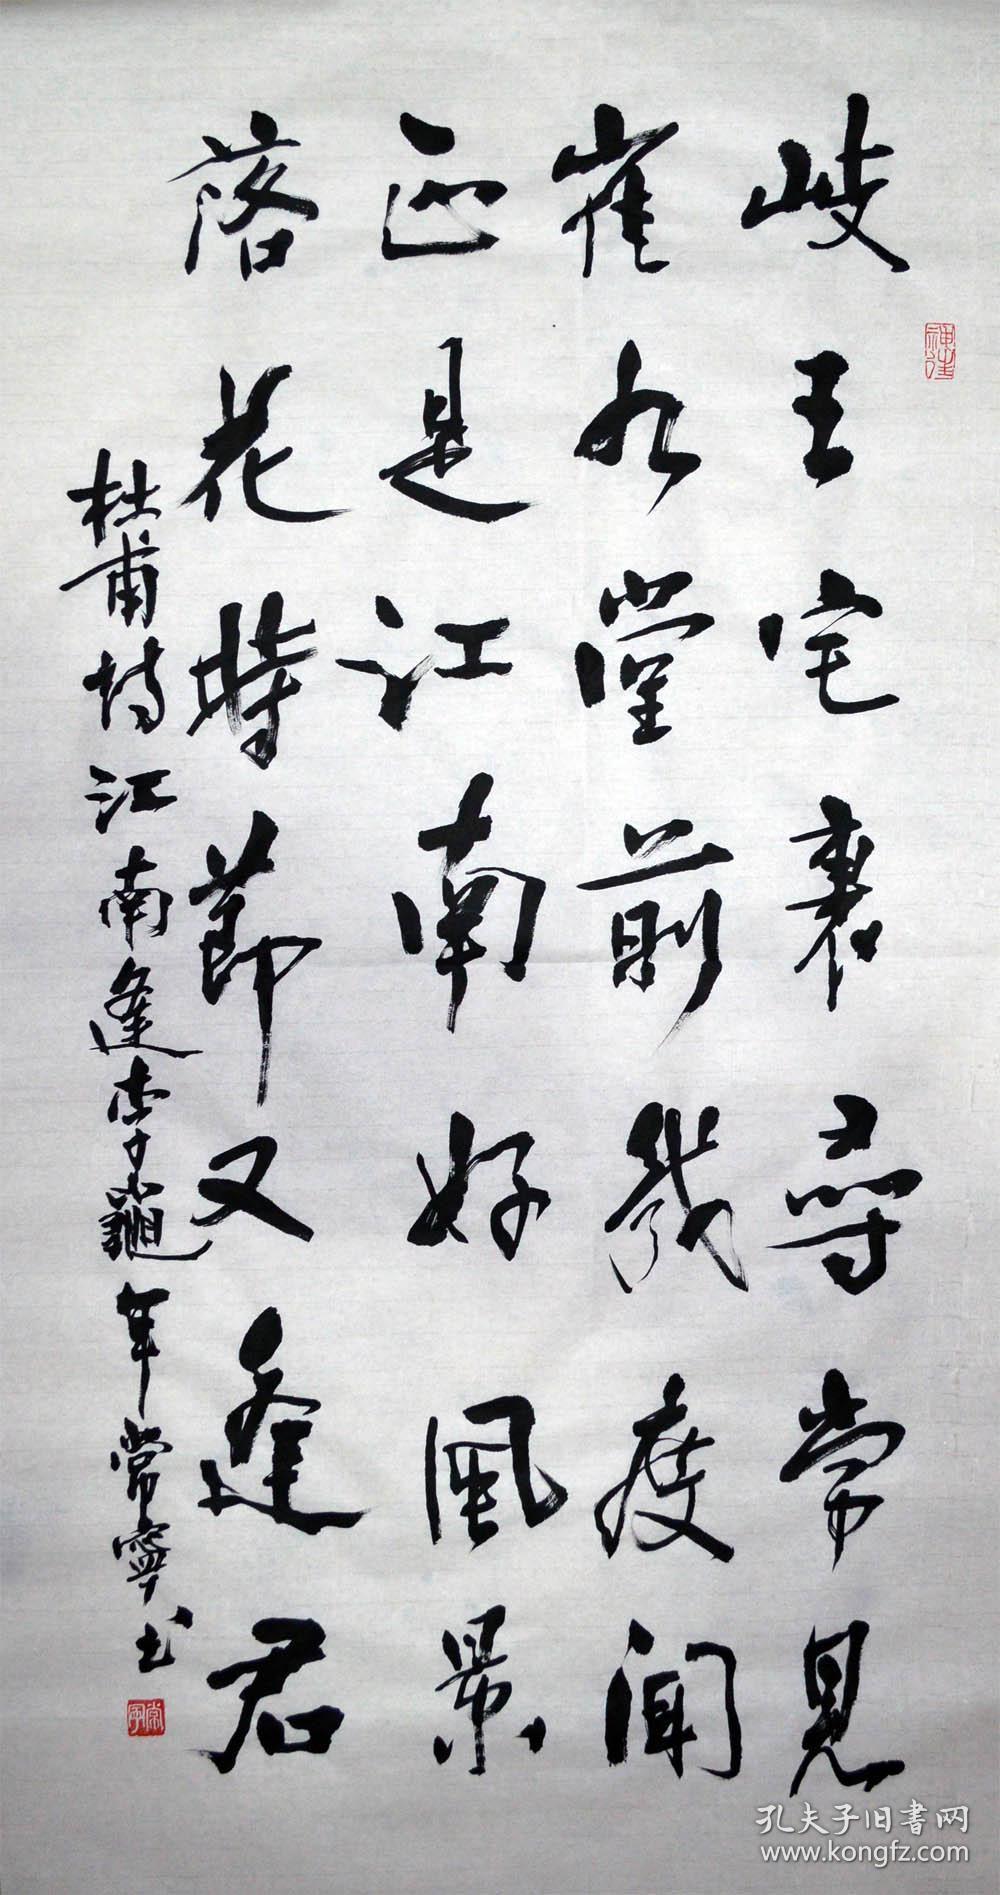 岐王宅裏尋常見
崔九堂前幾度聞
正是江南好風景
落花時節又逢君
杜甫詩江南逢李龜年常寧书
孔夫子旧書网
www.kongfz.com